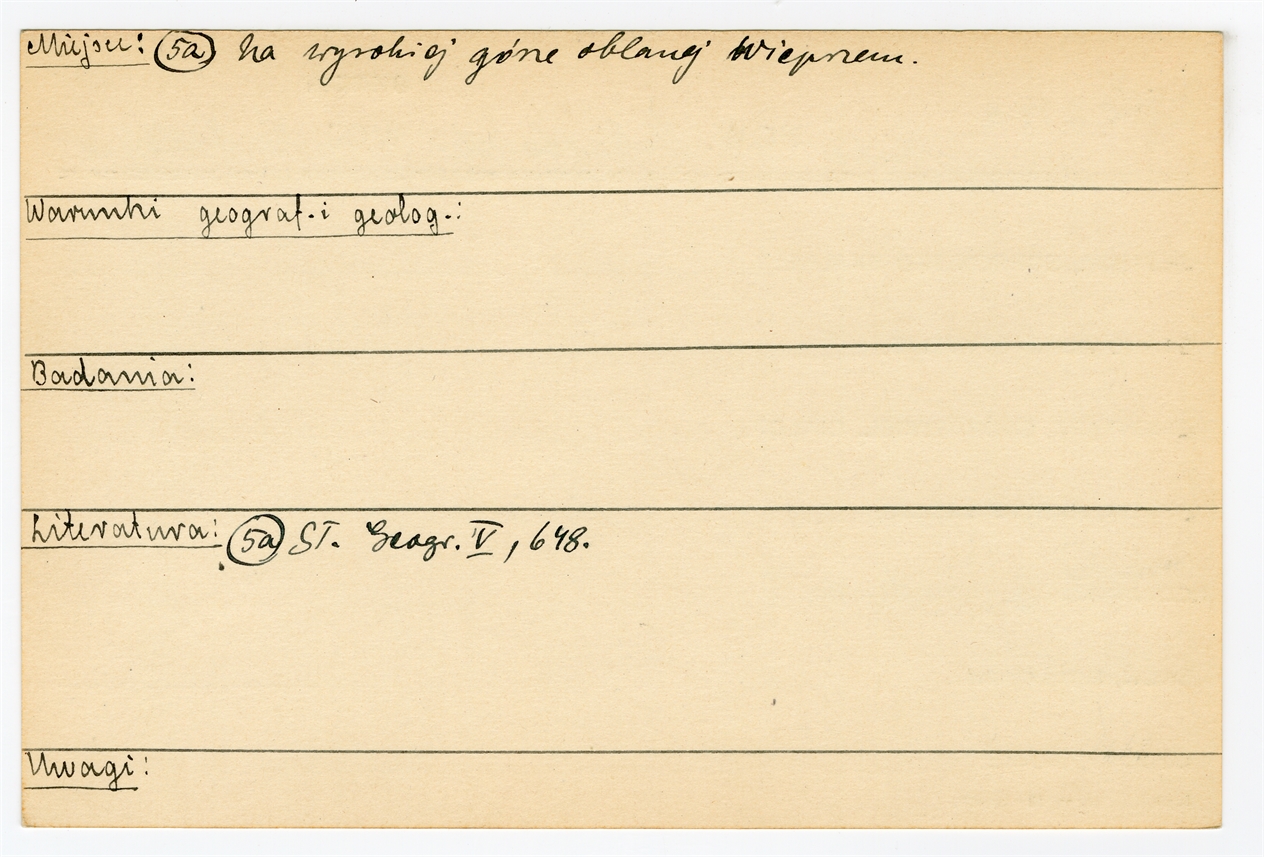 Miejsce: 5a Na wysokiej górze oblanej Wieprzem.
Warunki geograf. i geolog.:
Badania:
Literatura: 5a Sł. Geogr. V, 648.
Uwagi: